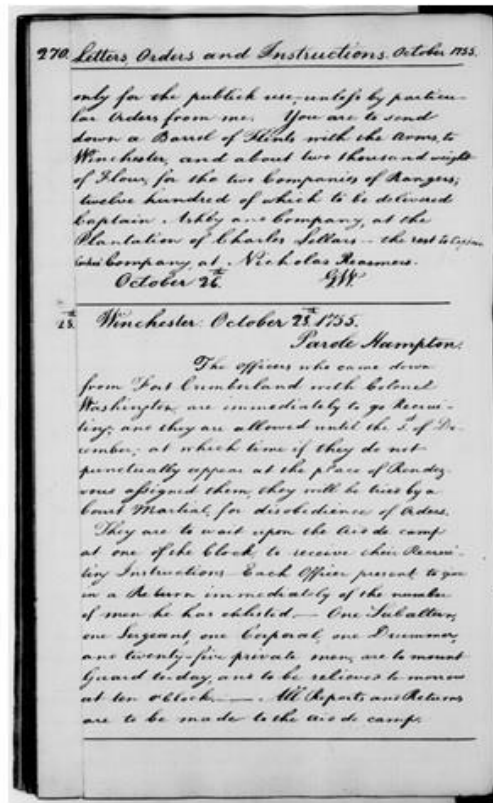 270. Letters, Orders and Instructions. October 1755.
only for the publick use, unless by particu-
lar Orders from me. You are to send
down a Barrel of Flints with the Arms, to
Winchester, and about two thousand weight
of Flour, for the two Companies of Rangers;
twelve hundred of which to be delivered
Captain Ashby and Company, at the
Plantation of Charles Sellars - the rest to Captain
Cocks' Company, at Nicholas Reasmers.
October 26th. GW.
28th. Winchester: October 28th. 1755.
Parole Hampton.
The Officers who came down
from Fort Cumberland with Colonel
Washington, are immediately to go Recrui-
ting; and they are allowed until the 1st. of De-
cember; at which time if they do not
punctually appear at the place of Rendez-
vous assigned them, they will be tried by a
Court Martial, for disobedience of Orders.
They are to wait upon the Aid de camp
at one of the Clock, to receive their Recrui-
ting Instructions - Each Officer present, to give
in a Return immediately of the number
of men he has enlisted. - One Subaltern,
one Sergeant, one Corporal, one Drummer,
and twenty-five private men, are to mount
Guard to day, and to be relieved to morrow
at ten o'Clock. - All Reports and Returns
are to be made to the Aid de camp.